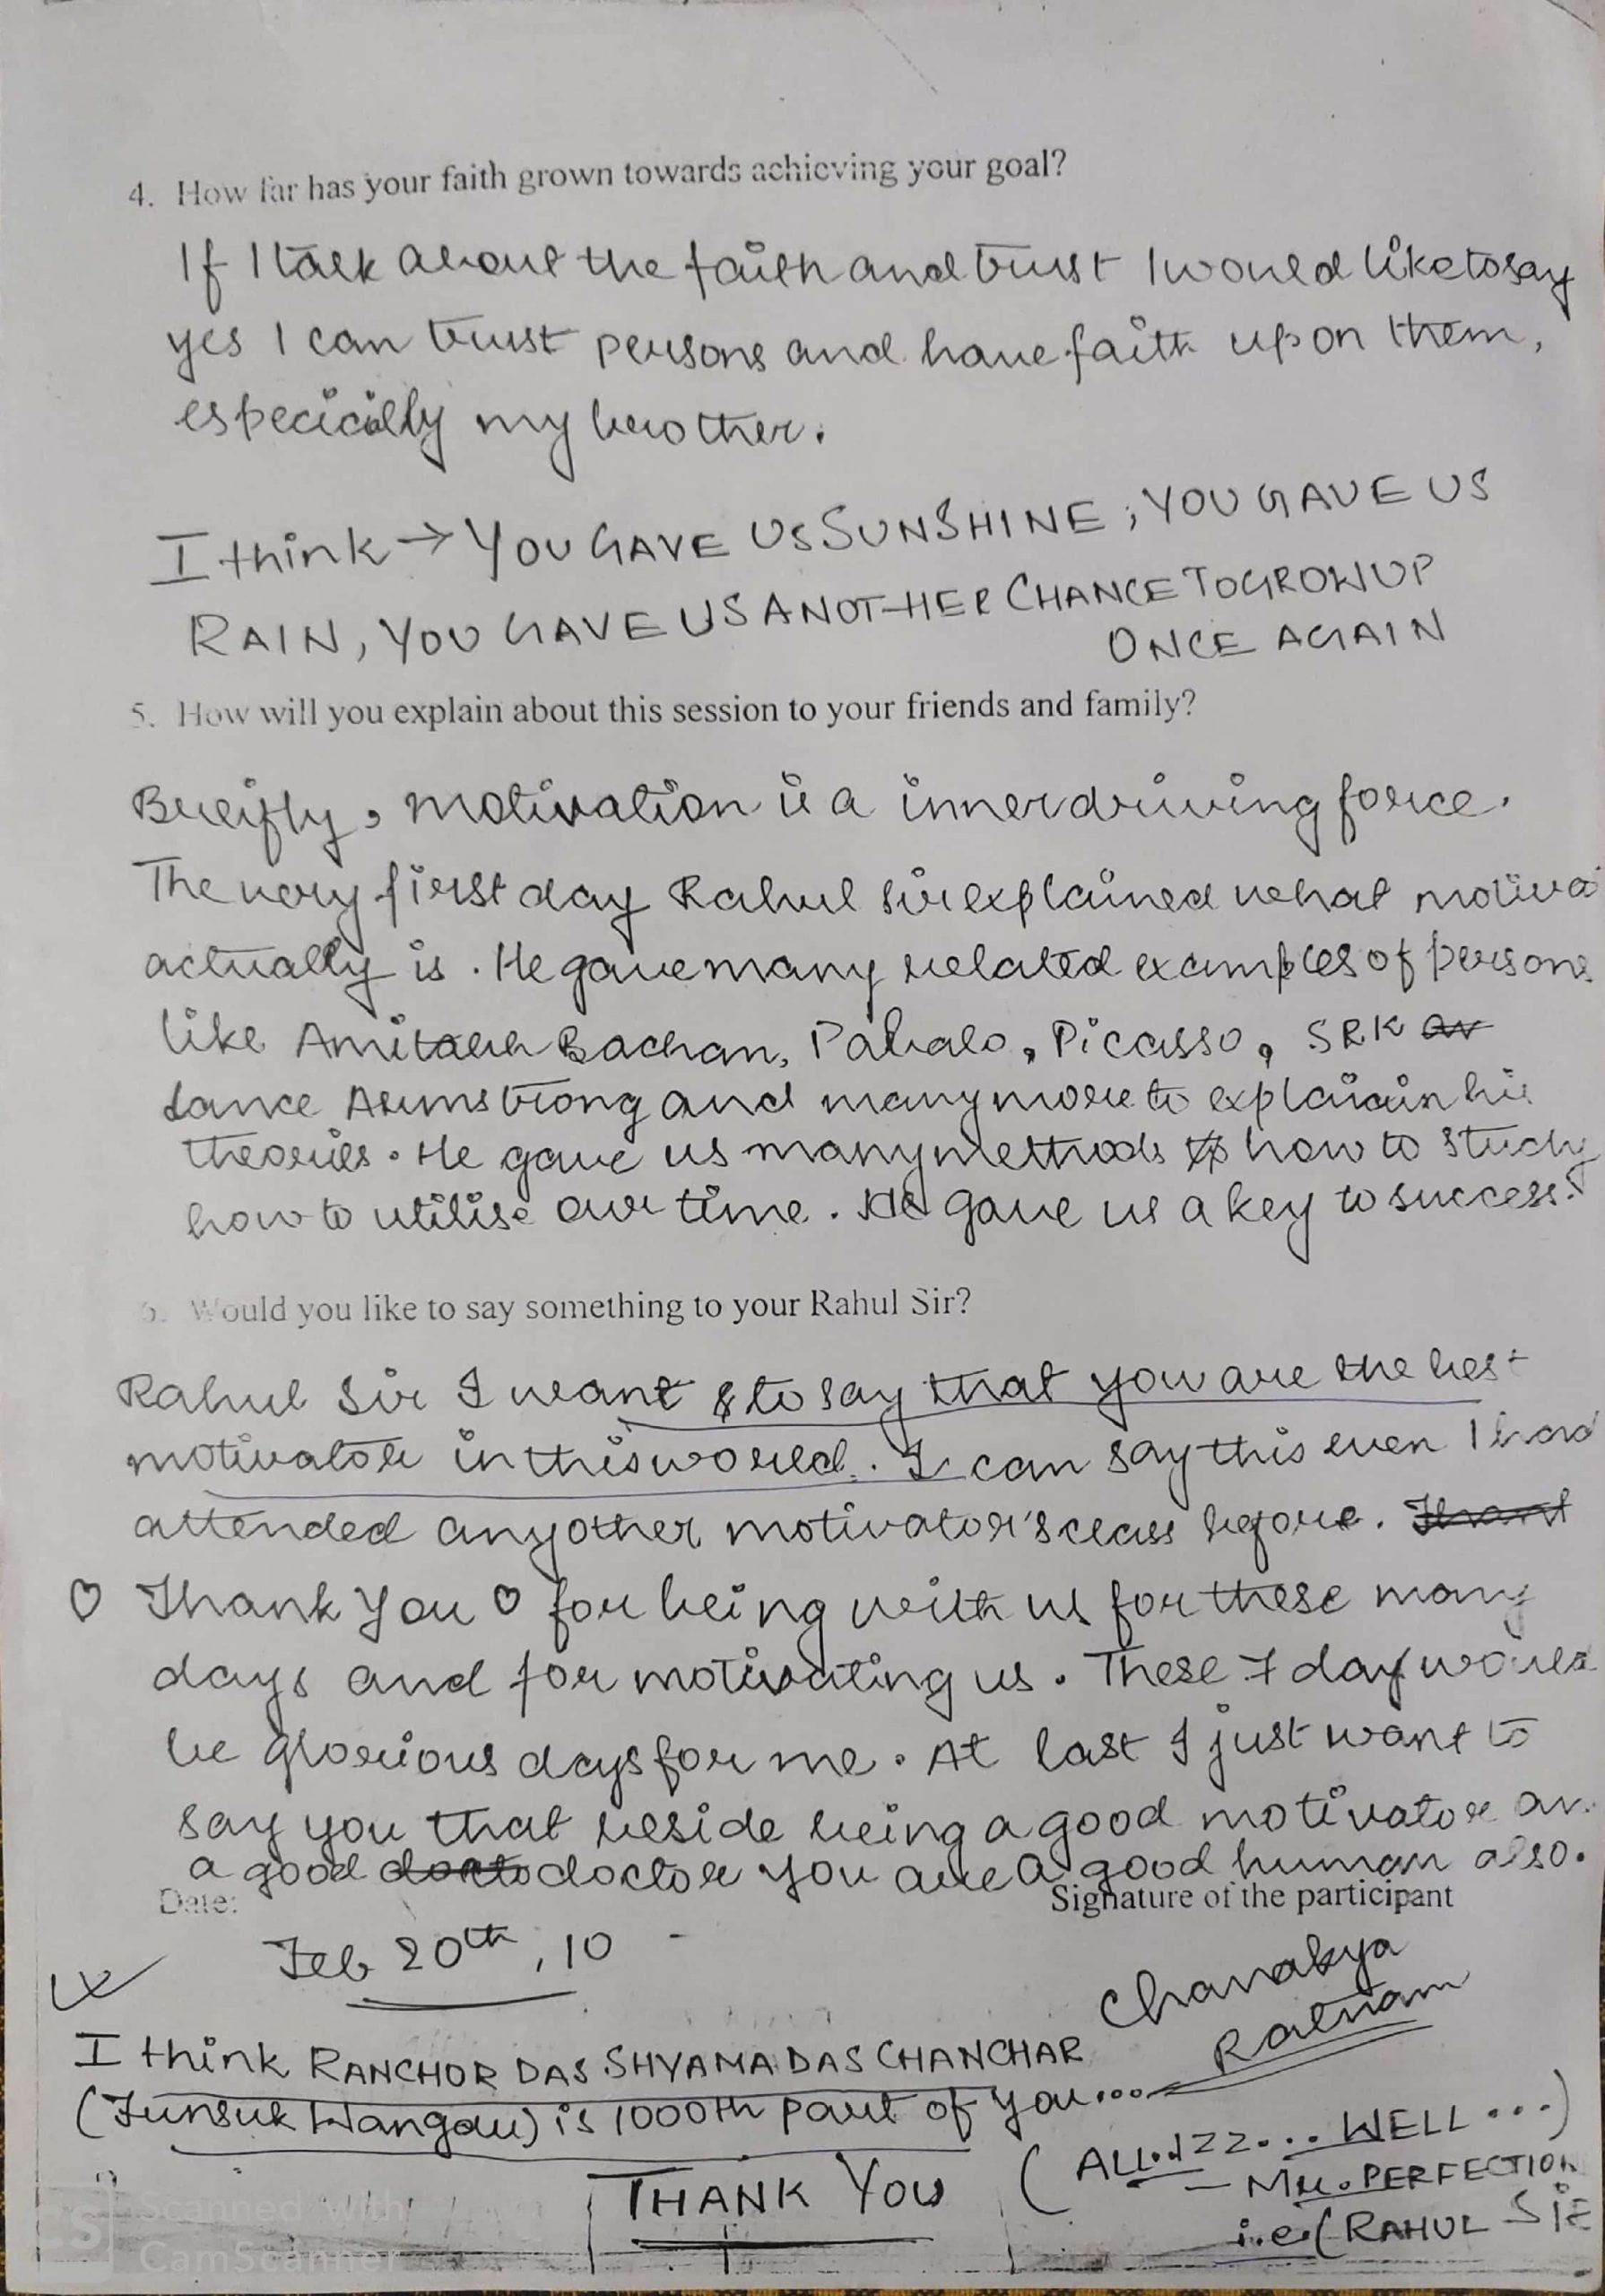 4. How far has your faith grown towards achieving your goal?
If I talk about the faith and trust I would like to say
yes I can trust persons and have faith upon them,
especially my brother.
I think → YOU GAVE US SUNSHINE ; YOU GAVE US
RAIN, YOU GAVE US ANOTHER CHANCE TO GROW UP
ONCE AGAIN
5. How will you explain about this session to your friends and family?
Breifly, motivation is a inner driving force.
The very first day Rahul sir explained what motiva
actually is. He gave many related examples of persons
like Amitabh Bachan, Pabalo, Picasso, SRK
Lance Armstrong and many more to explaiain his
theories. He gave us many methods how to study
how to utilise our time. He gave us a key to success.
6. Would you like to say something to your Rahul Sir?
Rahul Sir I want to say that you are the best
motivator in this world. I can say this even I had
attended any other motivator's class before.
♡ Thank You ♡ for being with us for these many
days and for motivating us. These 7 day would
be glorious days for me. At last I just want to
say you that beside being a good motivator an
a good doctor you are a good human also.
Date: Signature of the participant
Feb 20th, 10
Chanakya
Ratnam
I think RANCHOR DAS SHYAMA DAS CHANCHAR
(Funsuk Wangdu) is 1000th part of you...
(ALL.IZZ... WELL...)
THANK YOU
- Mr. PERFECTION
i.e. (RAHUL SIR
CS Scanned with
CamScanner